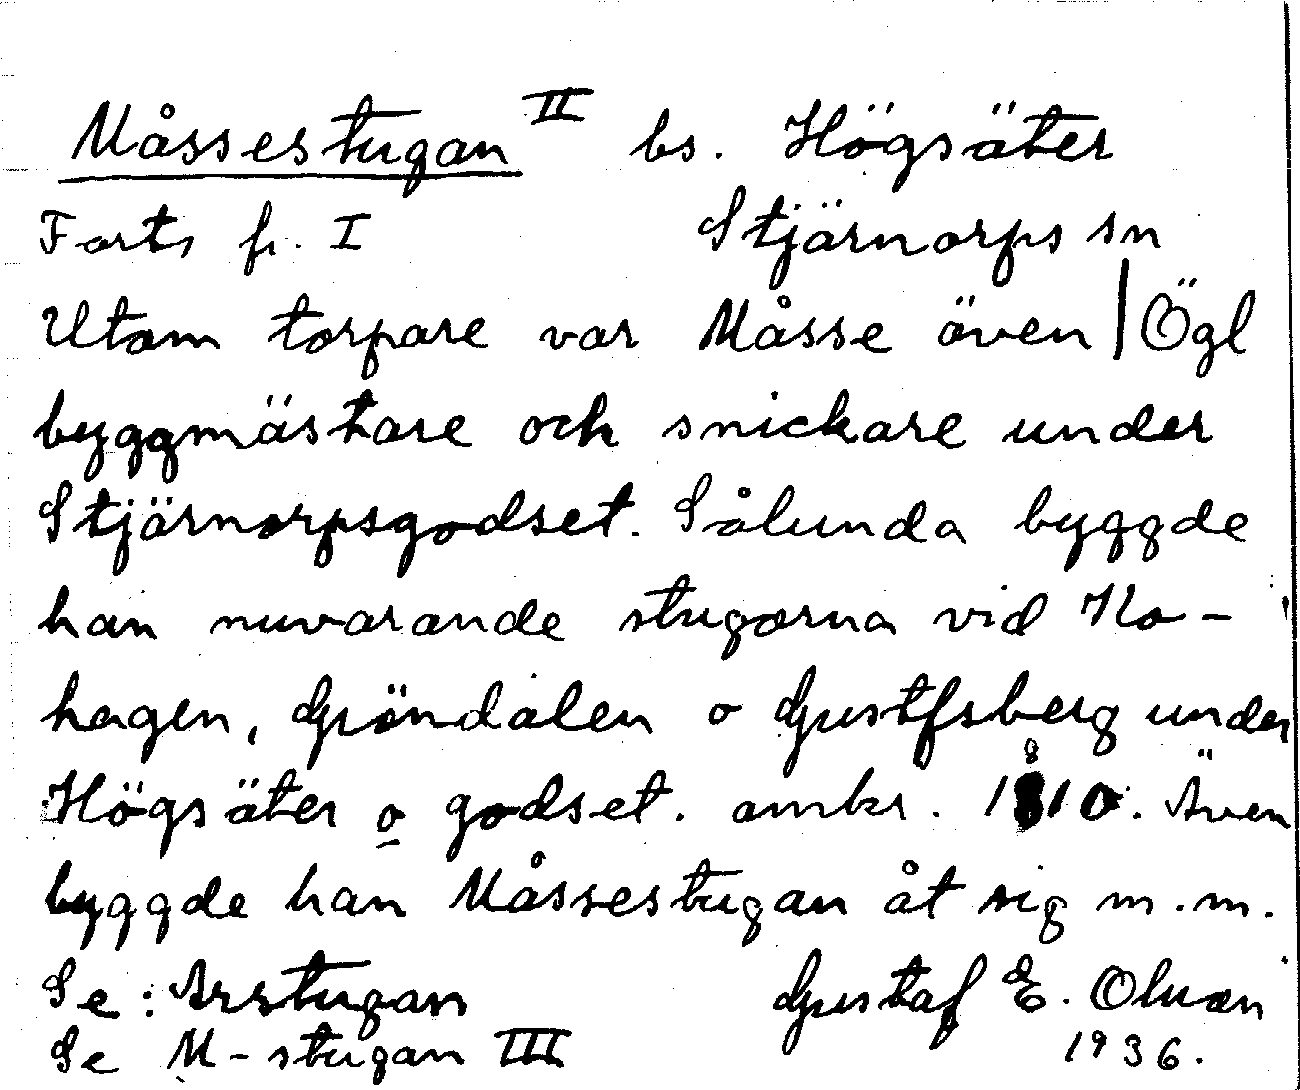 Måssestugan II bs. Högsäter
Forts fr. I Stjärnorps sn
Utom torpare var Måsse även | Ögl
byggmästare och snickare under
Stjärnorpsgodset. Sålunda byggde
han nuvarande stugorna vid Ko-
hagen, Gröndalen o Gustfsberg under
Högsäter o godset. omkr. 1810. Även
byggde han Måssestugan åt sig m.m.
Se: Arstugan Gustaf E. Olsson
Se M-stugan III 1936.